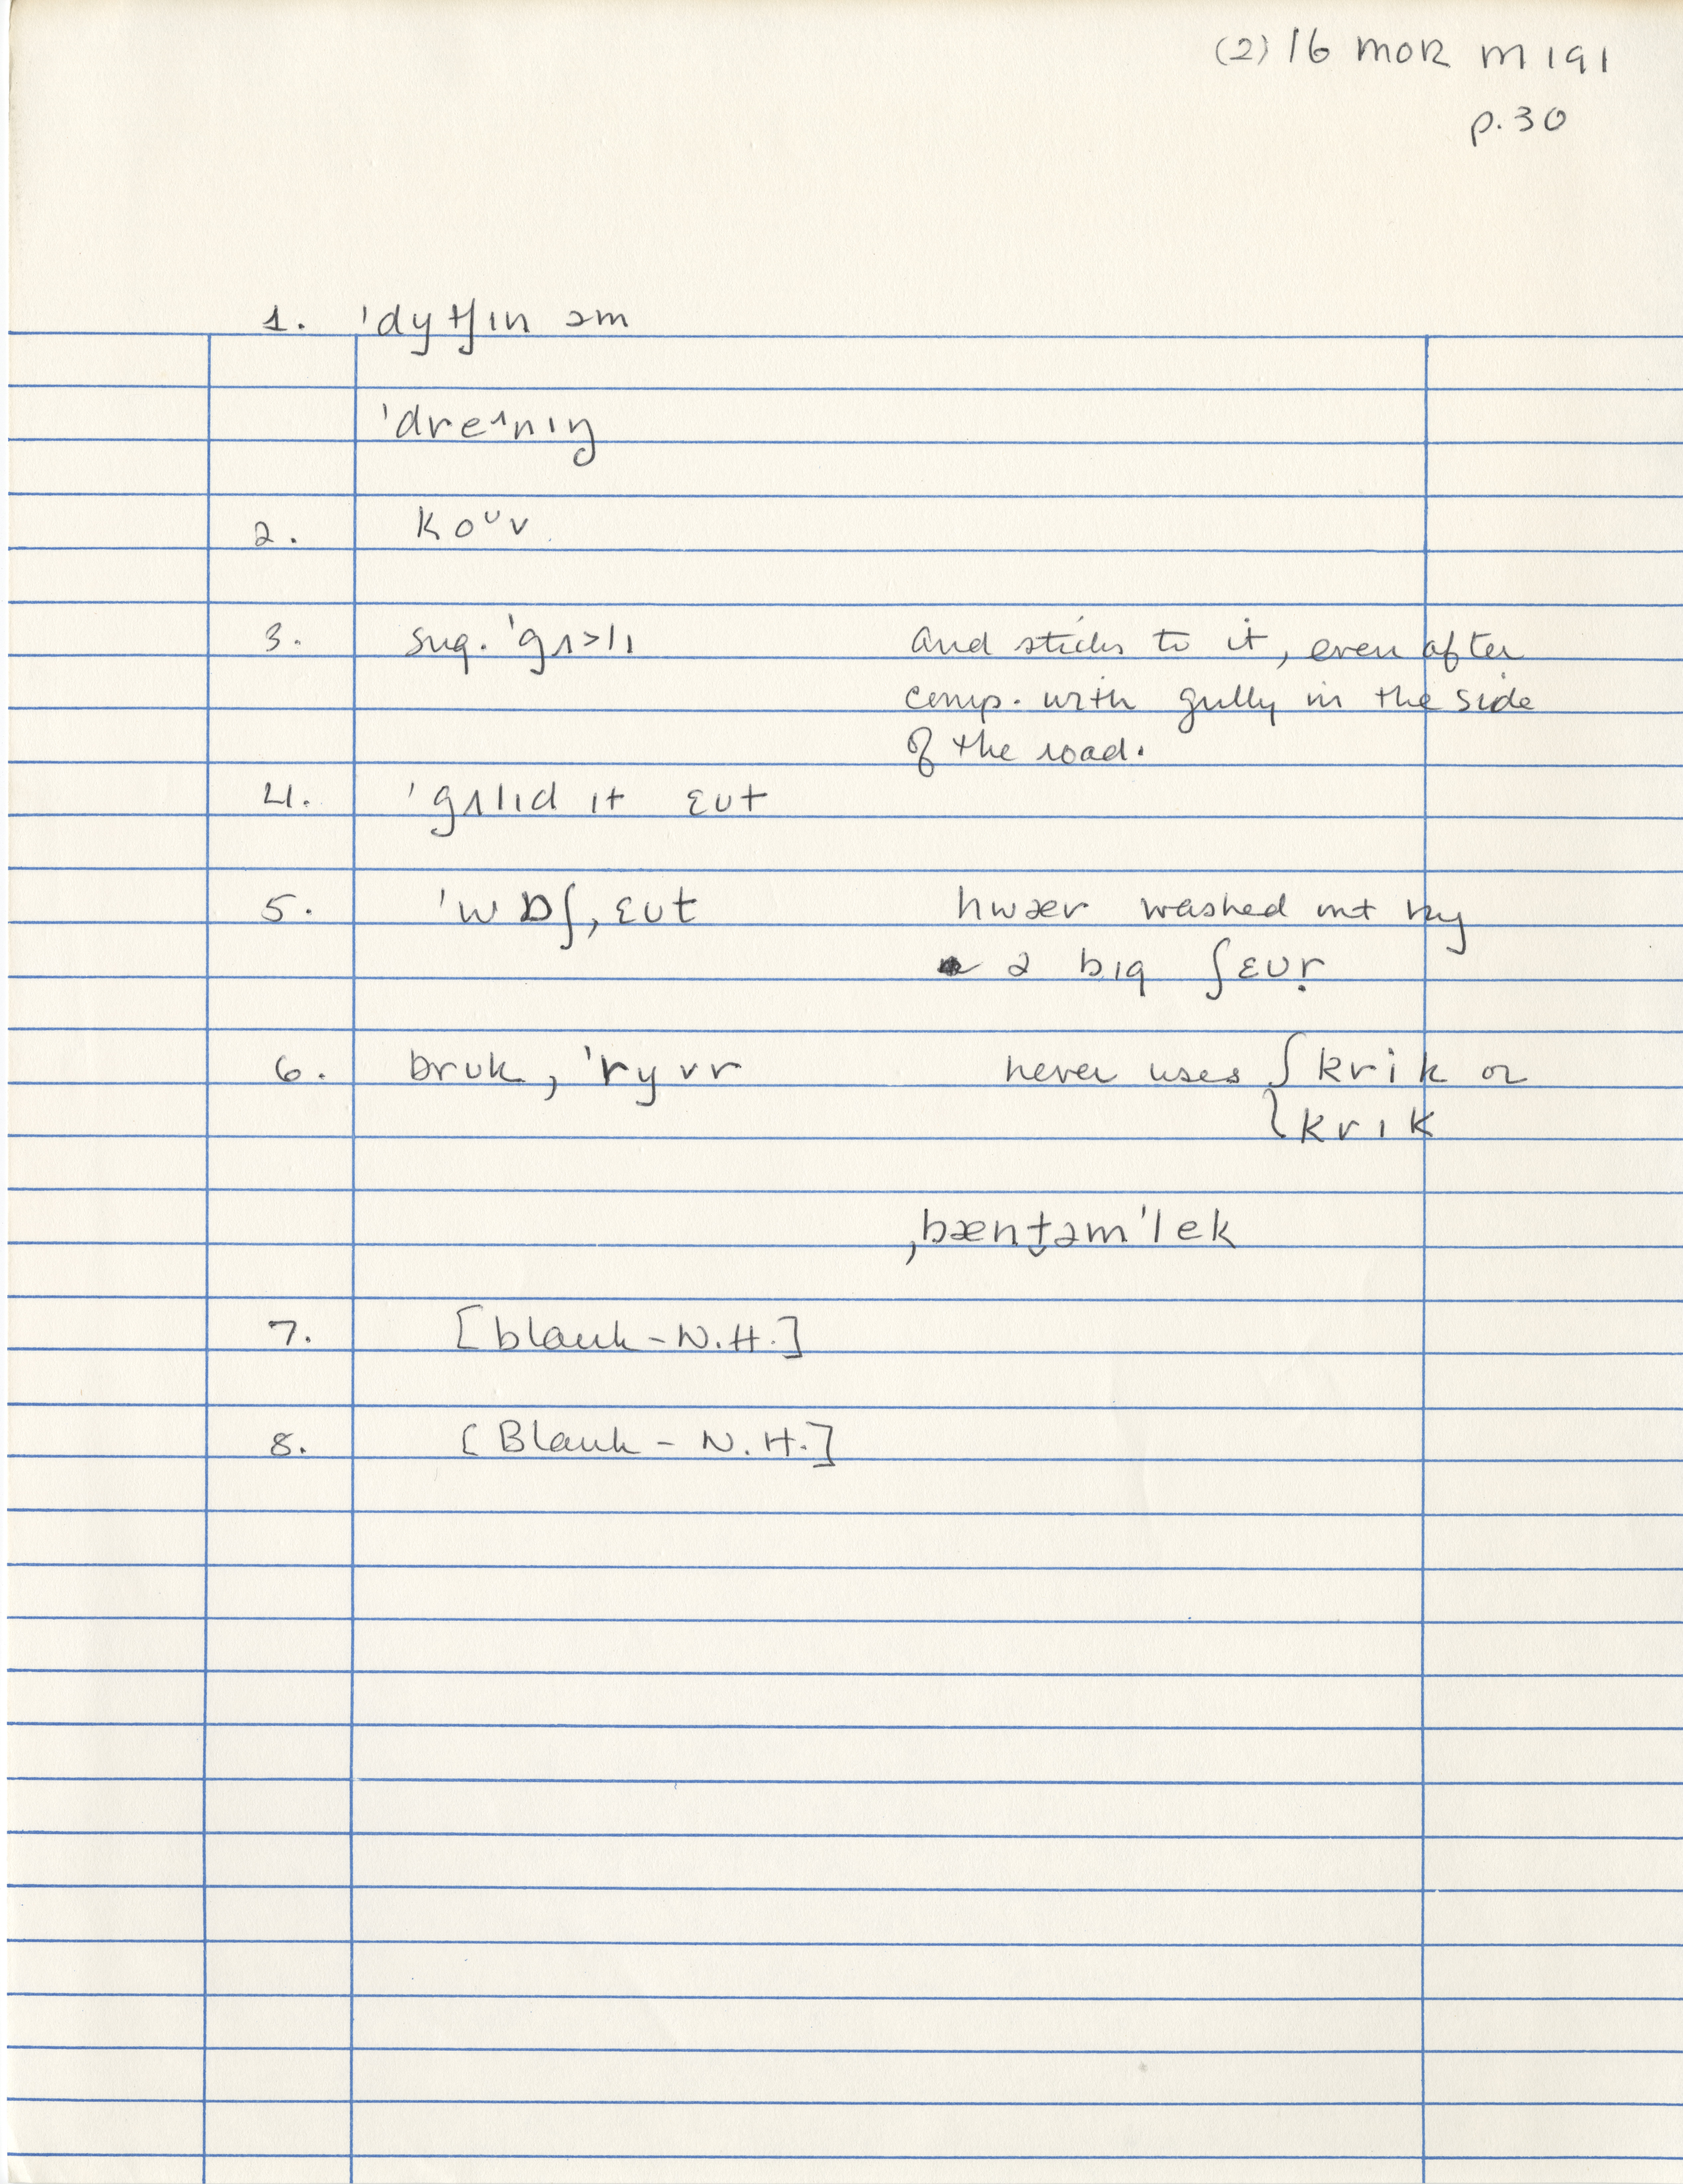 (2) 16 MOR M 191
p. 30
1. ˈdyʧɪn əm
ˈdreᶦnɪŋ
2. koᶸv
3. sug. ˈgʌ>lɪ and sticks to it, even after
comp. with gully in the side
of the road.
4. ˈgʌlɪd ɪt ɛʊt
5. ˈwɒʃˌɛʊt hwær washed out by
ə bɪg ʃɛʊṛ
6. brʊk, ˈryvr never uses { krik or
krɪk
ˌbænt̬əmˈlek
7. [blank - N.H.]
8. [Blank - N.H.]